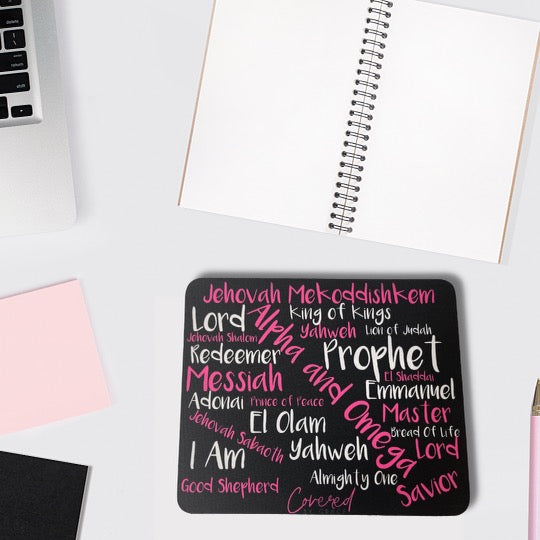 delete
return
shift
Jehovah Mekoddishkem
Lord
King of Kings
Alpha and Omega
Jehovah Shalom
Yahweh
Lion of Judah
Redeemer
Prophet
Messiah
El Shaddai
Emmanuel
Adonai
Prince of Peace
Master
Jehovah Sabaoth
El Olam
Bread Of Life
I Am
Yahweh
Lord
Good Shepherd
Almighty One
Savior
Covered